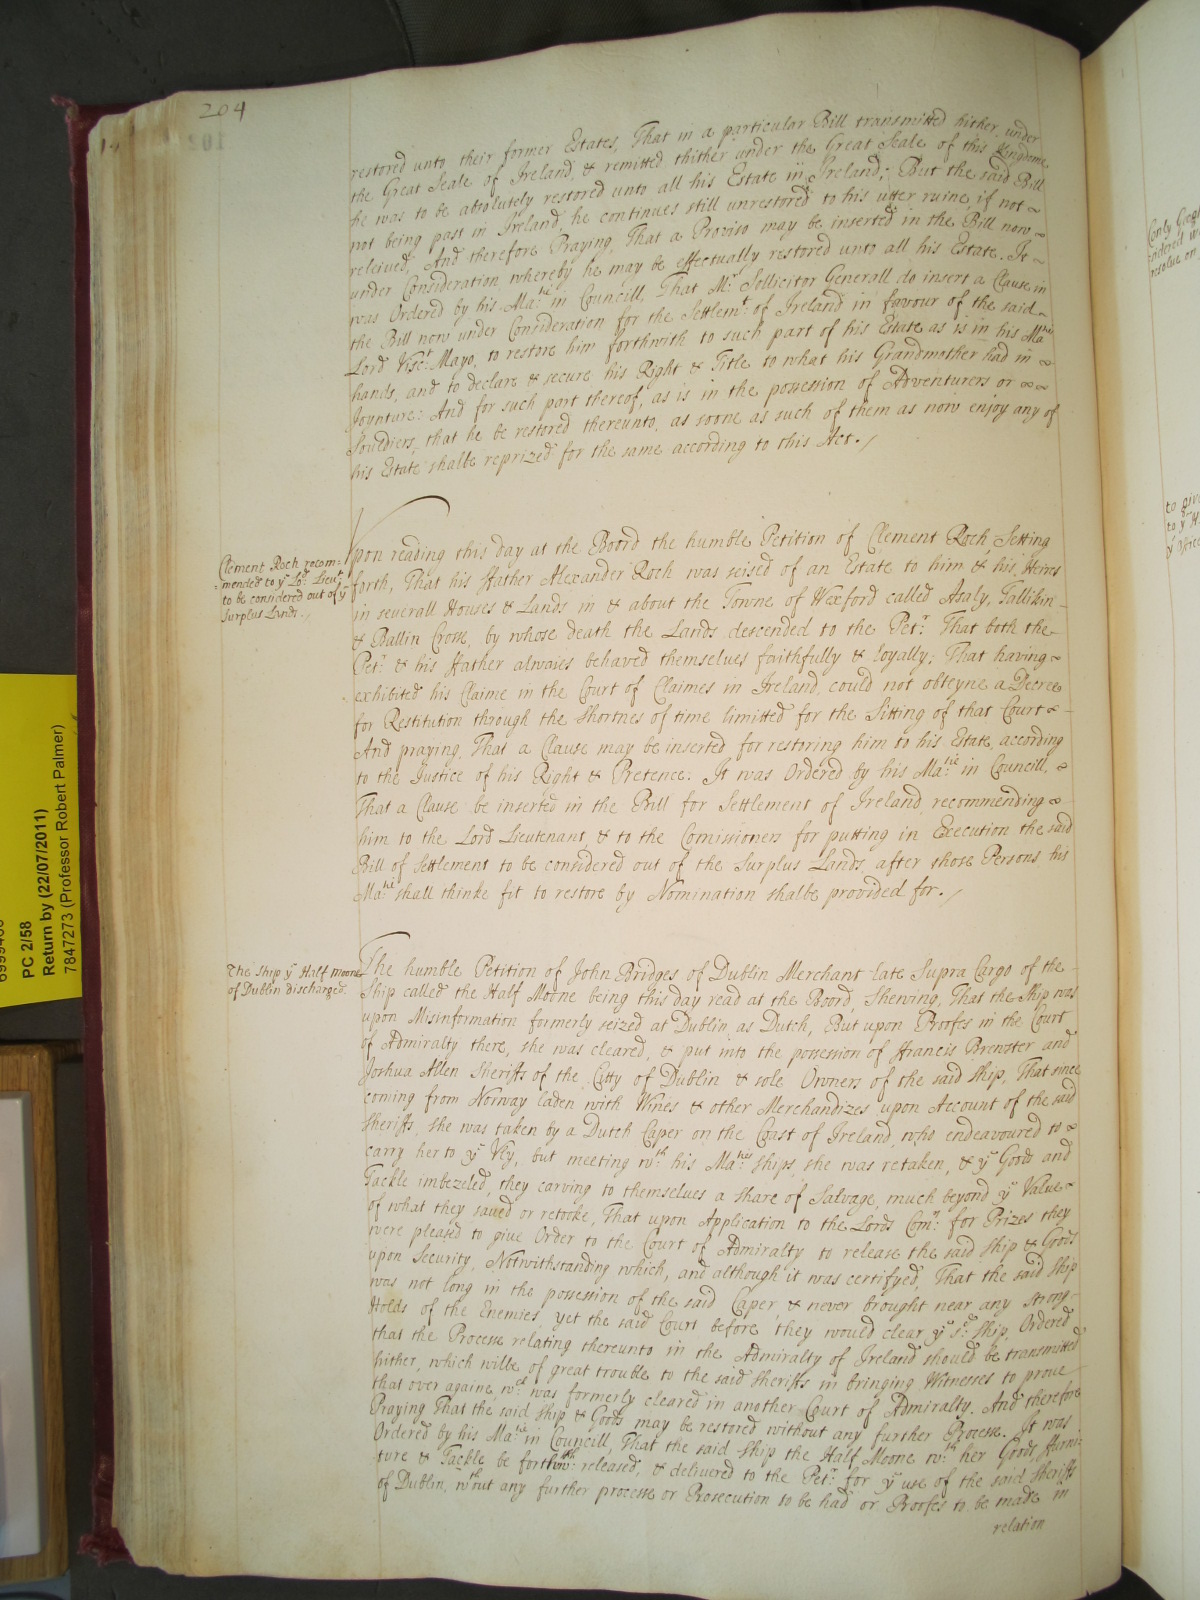 204
restored unto their former Estates, That in a particular Bill transmitted hither under
the Great Seale of Ireland, & remitted thither under the Great Seale of this Kingdome
he was to be absolutely restored unto all his Estate in Ireland; But the said Bill
not being past in Ireland, he continues still unrestored to his utter ruine, if not
releived, And therefore Praying, That a Proviso may be inserted in the Bill now
under Consideration whereby he may be effectually restored unto all his Estate. It
was Ordered by his Ma:tie in Councill, That Mr: Sollicitor Generall do insert a Clause in
the Bill now under Consideration for the Settlemt of Ireland in favour of the said
Lord Visct: Mayo, to restore him forthwith to such part of his Estate as is in his Ma:ties
hands, and to declare & secure his Right & Title to what his Grandmother had in
Joynture: And for such part thereof, as is in the possession of Adventurers or
Souldiers, that he be restored thereunto, as soone as such of them as now enjoy any of
his Estate shalbe reprized for the same according to this Act./
Clement Roch recom-
-mended to ye Lo:d Lieut
to be considered out of ye
Surplus Lands./
Upon reading this day at the Board the humble Petition of Clement Roch Setting
forth, That his ffather Alexander Roch was seised of an Estate to him & his Heires
in severall Houses & Lands in & about the Towne of Wexford called Asaly, Tallikin
& Ballin Crosse, by whose death the Lands descended to the Petr: That both the
Petr: & his ffather alwaies behaved themselves faithfully & loyally; That having
exhibited his Claime in the Court of Claimes in Ireland, could not obteyne a Decree
for Restitution through the shortnes of time limitted for the Sitting of that Court
And praying, That a Clause may be inserted for restoring him to his Estate, according
to the Justice of his Right & Pretence. It was Ordered by his Ma:tie in Councill,
That a Clause be inserted in the Bill for Settlement of Ireland recommending
him to the Lord Lieutenant, & to the Comisioners for putting in Execution the said
Bill of Settlement to be considered out of the Surplus Lands after those Persons his
Ma:tie shall thinke fit to restore by Nomination shalbe provided for./
The Ship ye Half moone
of Dublin discharged.
The humble Petition of John Bridges of Dublin Merchant late Supra Cargo of the
Ship called the Half Moone being this day read at the Board, Shewing, That the Ship was
upon Misinformation formerly seized at Dublin as Dutch, But upon Proofes in the Court
of Admiralty there, she was cleared, & put into the possession of ffrancis Brewster and
Joshua Allen Sheriffs of the Citty of Dublin & sole Owners of the said Ship, That since
coming from Norway laden with Wines & other Merchandizes upon Account of the said
Sheriffs, she was taken by a Dutch Caper on the Coast of Ireland, who endeavoured to
carry her to ye Vly, but meeting wth: his Ma:ties Ships, she was retaken, & ye Goods and
Tackle imbezeled, they carving to themselves a share of Salvage, much beyond ye Value
of what they saved or retooke, That upon Application to the Lords Comrs: for Prizes they
were pleased to give Order to the Court of Admiralty to release the said Ship & Goods
upon Security, Notwithstanding which, and although it was certifyed, That the said Ship
was not long in the possession of the said Caper & never brought near any strong-
Holds of the Enemies, yet the said Court before they would clear ye sd: Ship, Ordered
that the Processe relating thereunto in the Admiralty of Ireland should be transmitted
hither, which wilbe of great trouble to the said Sheriffs in bringing Witnesses to prove
that over againe, wch: was formerly cleared in another Court of Admiralty. And therefore
Praying That the said Ship & Goods may be restored without any further Processe. It was
Ordered by his Ma:tie in Councill, That the said Ship the Half Moone wth: her Goods, ffurni-
ture & Tackle be forthwth: released, & delivered to the Petr: for ye use of the said Sheriffs
of Dublin, wthout any further processe or Prosecution to be had or Proofes to be made in
relation
PC 2/58
Return by (22/07/2011)
7847273 (Professor Robert Palmer)